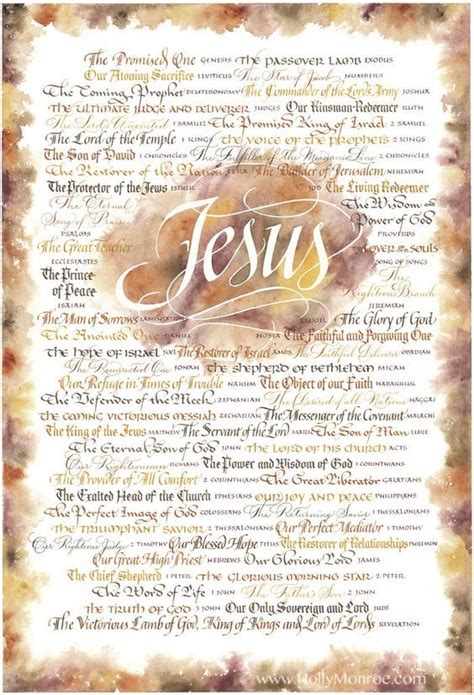 The Promised One GENESIS THE PASSOVER LAMB EXODUS
Our Atoning Sacrifice LEVITICUS The Star of Jacob NUMBERS
The Coming Prophet DEUTERONOMY The Commander of the Lord's Army JOSHUA
THE ULTIMATE JUDGE AND DELIVERER JUDGES Our Kinsman-Redeemer RUTH
The Lord's Anointed 1 SAMUEL The Promised King of Israel 2 SAMUEL
The Lord of the Temple 1 KINGS THE VOICE OF THE PROPHETS 2 KINGS
The Son of David 1 CHRONICLES The Fulfiller of the Messianic Line 2 CHRONICLES
The Restorer of the Nation EZRA The Builder of Jerusalem NEHEMIAH
The Protector of the Jews ESTHER JOB The Living Redeemer
The Eternal Song of Praise PSALMS
The Wisdom and Power of God PROVERBS
Jesus
The Great Teacher ECCLESIASTES
Lover of our Souls SONG OF SONGS
The Prince of Peace ISAIAH
The Righteous Branch JEREMIAH
The Man of Sorrows LAMENTATIONS The Glory of God
The Anointed One DANIEL HOSEA The Faithful and Forgiving One
THE HOPE OF ISRAEL JOEL The Restorer of Israel AMOS The OBADIAH
The Resurrected One JONAH THE SHEPHERD OF BETHLEHEM MICAH
Our Refuge in Times of Trouble NAHUM The Object of our Faith HABAKKUK
The Defender of the Meek ZEPHANIAH The Desired of all Nations HAGGAI
THE COMING VICTORIOUS MESSIAH ZECHARIAH The Messenger of the Covenant MALACHI
The King of the Jews MATTHEW The Servant of the Lord MARK The Son of Man LUKE
The Eternal Son of God JOHN THE LORD OF HIS CHURCH ACTS
Our Righteousness ROMANS The Power and Wisdom of God 1 CORINTHIANS
The Provider of All Comfort 2 CORINTHIANS The Great Liberator GALATIANS
The Exalted Head of the Church EPHESIANS OUR JOY AND PEACE PHILIPPIANS
The Perfect Image of God COLOSSIANS The Returning Savior 1 THESSALONIANS
THE TRIUMPHANT SAVIOR 2 THESSALONIANS Our Perfect Mediator 1 TIMOTHY
Our Righteous Judge 2 TIMOTHY Our Blessed Hope TITUS The Restorer of Relationships PHILEMON
Our Great High Priest HEBREWS Our Glorious Lord JAMES
The Chief Shepherd 1 PETER THE GLORIOUS MORNING STAR 2 PETER
The Word of Life 1 JOHN The Father's Son 2 JOHN
THE TRUTH OF GOD 3 JOHN Our Only Sovereign and Lord JUDE
The Victorious Lamb of God, King of Kings and Lord of Lords REVELATION
www.HollyMonroe.com